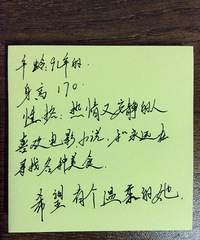 年龄:91年的.
身高 170.
性格:热情又安静的人
喜欢电影小说,和永远在
寻找各种美食.
希望有个温柔的她.